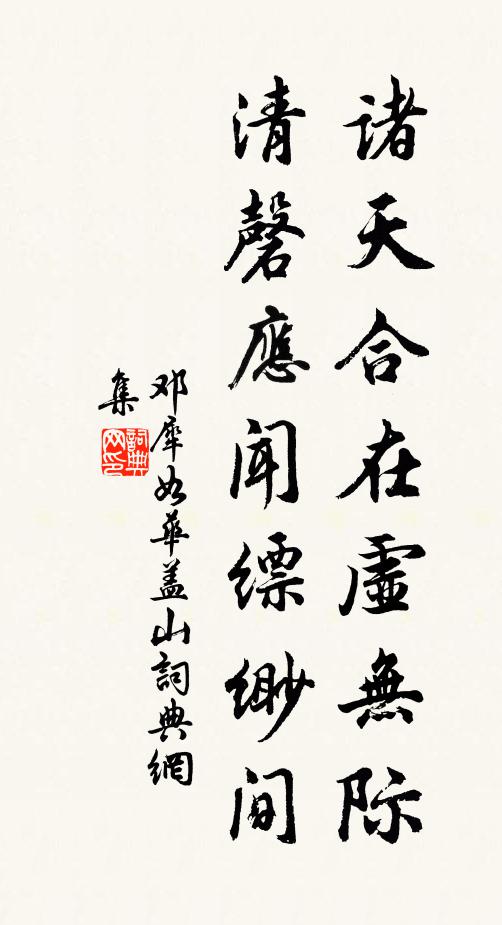 诸天合在虚無际
清磬應闻缥缈间
邓犀如華盖山詞典網
集
詞典网印